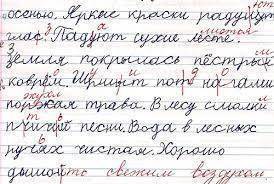 осенью. Яркие краски радуют
глас. Падуют сухие лесте.
Земля покрылась пёстрым
ковром. Шуришт под нагами
поржкая трава. В лесу смалкли
птичии песни. Вода в лесных
ручях чистая. Хорошо
дышойть свежим воздухом.